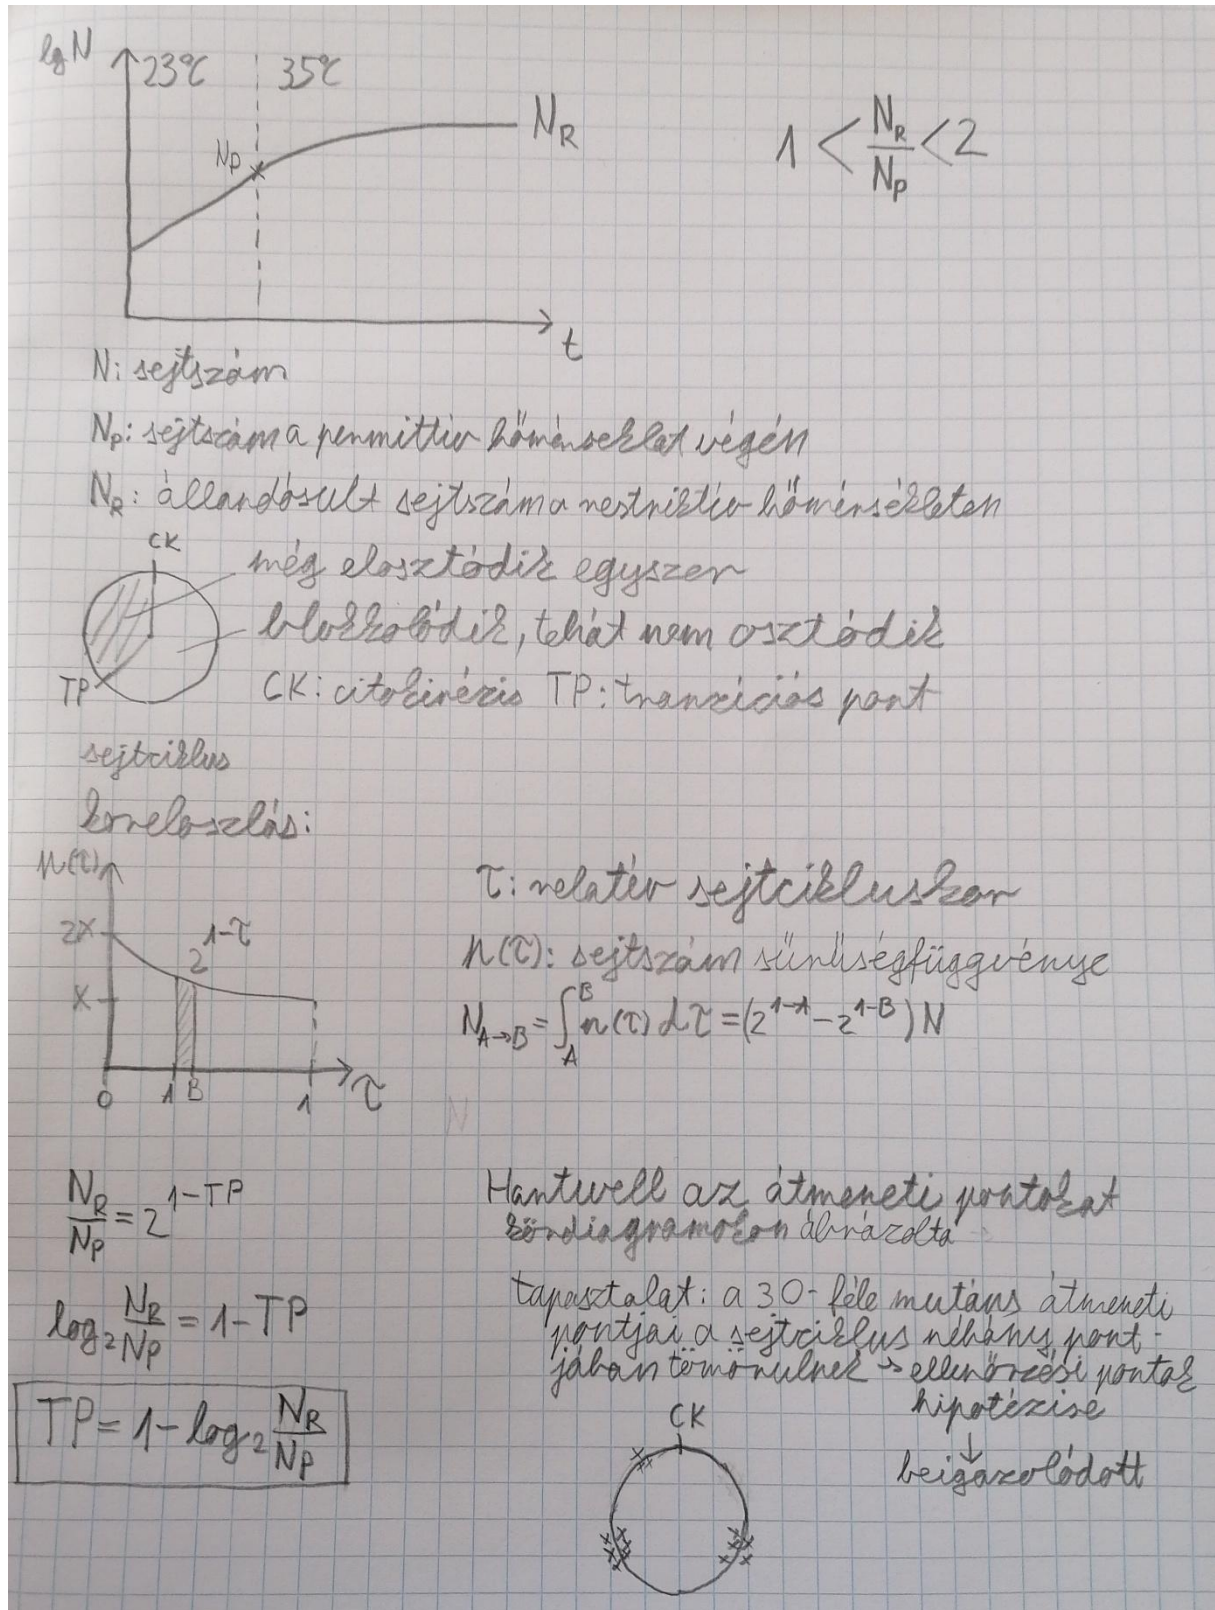 lg N
23°C
35°C
N_R
N_P
1 < N_R/N_P < 2
t
N: sejtszám
N_P: sejtszám a permittív hőmérséklet végén
N_R: állandósult sejtszám a restriktív hőmérsékleten
CK
még elosztódik egyszer
blokkolódik, tehát nem osztódik
TP
CK: citokinézis TP: tranzíciós pont
sejtciklus
koreloszlás:
n(τ)
2X
2^(1-τ)
X
0 A B 1 τ
τ: relatív sejtcikluskor
n(τ): sejtszám sűrűségfüggvénye
N_(A→B) = ∫_A^B n(τ) dτ = (2^(1-A) - 2^(1-B)) N
N_R/N_P = 2^(1-TP)
log₂ N_R/N_P = 1 - TP
TP = 1 - log₂ N_R/N_P
Hartwell az átmeneti pontokat
kördiagramokon ábrázolta
tapasztalat: a 30-féle mutáns átmeneti
pontjai a sejtciklus néhány pont-
jában tömörülnek → ellenőrzési pontok
hipotézise
↓
beigazolódott
CK